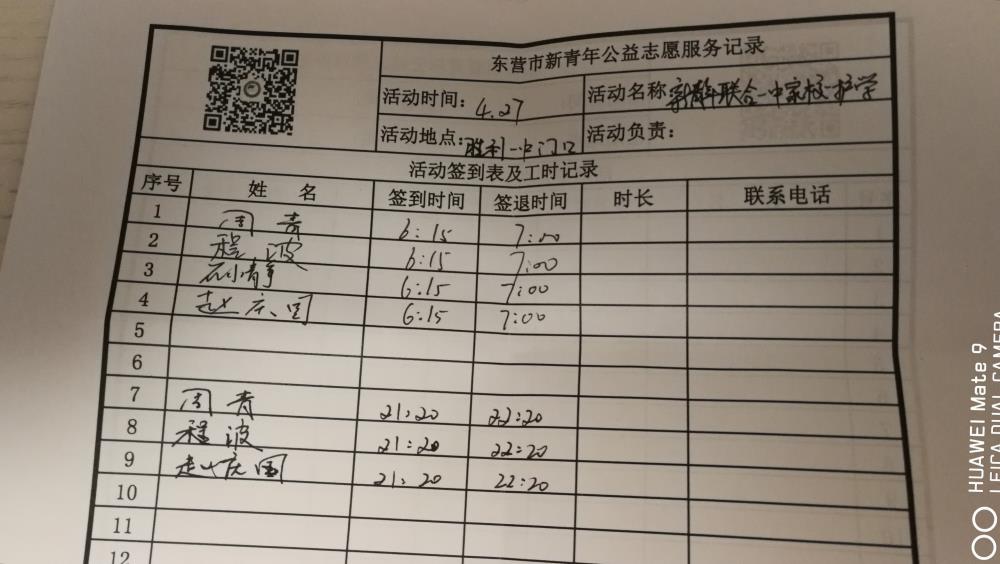 东营市新青年公益志愿服务记录
活动时间：4.27 活动名称 新青年联合一中家校护学
活动地点：胜利一中门口 活动负责：
活动签到表及工时记录
序号 姓名 签到时间 签退时间 时长 联系电话
1 周青 6:15 7:00
2 程波 6:15 7:00
3 石小青 6:15 7:00
4 赵庆国 6:15 7:00
5
6
7 周青 21:20 22:20
8 程波 21:20 22:20
9 赵庆国 21:20 22:20
10
11
12
HUAWEI Mate 9
LEICA DUAL CAMERA